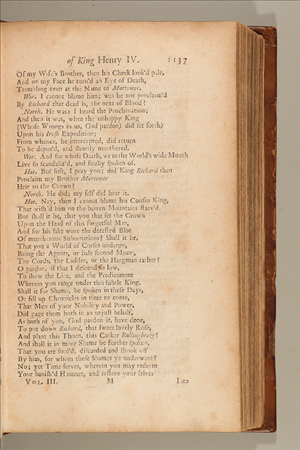 of King Henry IV. 1137
Of my Wife's Brother, then his Cheek look'd pale,
And on my Face he turn'd an Eye of Death,
Trembling even at the Name of Mortimer.
Wor. I cannot blame him; was he not proclaim'd
By Richard that dead is, the next of Blood?
North. He was: I heard the Proclamation;
And then it was, when the unhappy King
(Whose Wrongs in us, God pardon) did set forth
Upon his Irish Expedition;
From whence, he intercepted, did return
To be depos'd, and shortly murthered.
Wor. And for whose Death, we in the World's wide Mouth
Live so scandaliz'd, and foully spoken of.
Hot. But soft, I pray you; did King Richard then
Proclaim my Brother Mortimer
Heir to the Crown?
North. He did; my self did hear it.
Hot. Nay, then I cannot blame his Cousin King,
That wish'd him on the barren Mountains starv'd.
But shall it be, that you that set the Crown
Upon the Head of this forgetful Man,
And for his sake wore the detested Blot
Of murtherous Subornation? Shall it be,
That you a World of Curses undergo,
Being the Agents, or base second Means,
The Cords, the Ladder, or the Hangman rather?
O pardon, if that I descend so low,
To shew the Line, and the Predicament
Wherein you range under this subtle King.
Shall it for Shame, be spoken in these Days,
Or fill up Chronicles in time to come,
That Men of your Nobility and Power,
Did gage them both in an unjust behalf,
As both of you, God pardon it, have done,
To put down Richard, that sweet lovely Rose,
And plant this Thorn, this Canker Bullingbrook?
And shall it in more Shame be further spoken,
That you are fool'd, discarded and shook off
By him, for whom these Shames ye underwent?
No; yet Time serves, wherein you may redeem
Your banish'd Honours, and restore your selves
VOL. III. M Into